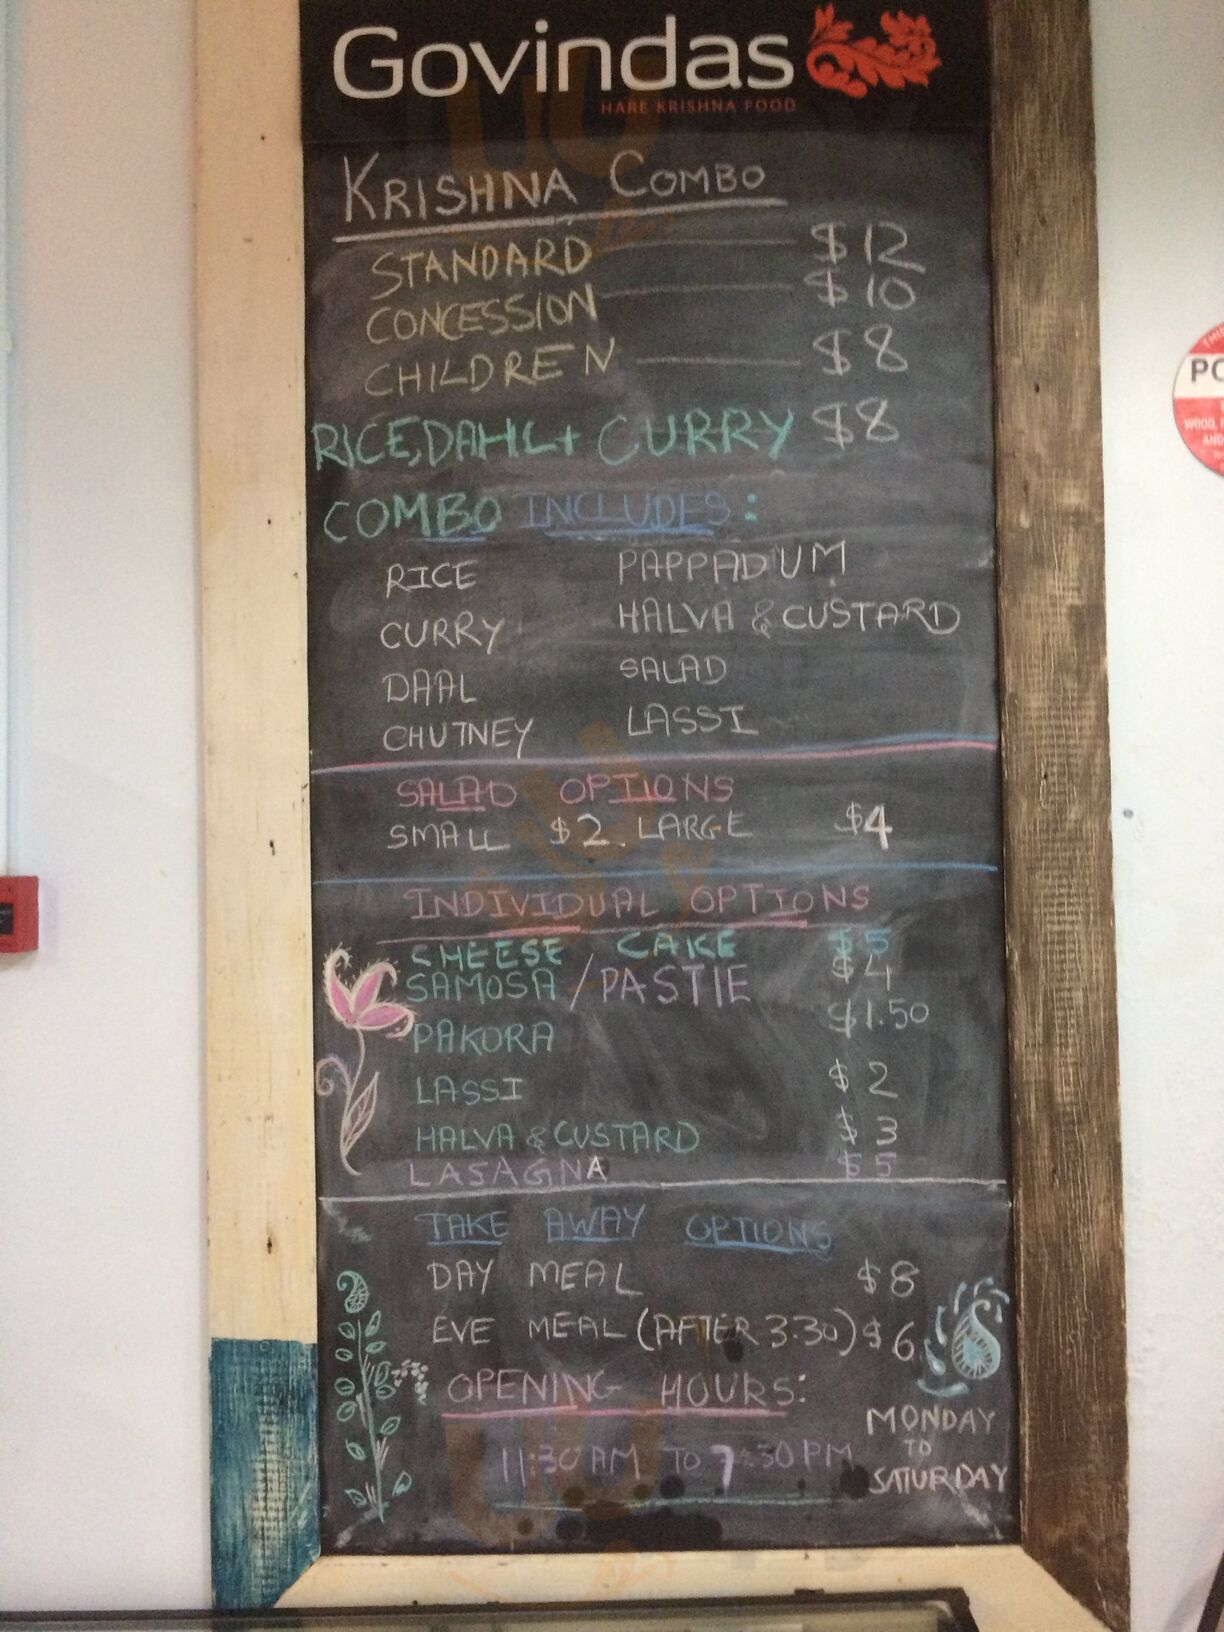 Govindas
HARE KRISHNA FOOD
KRISHNA COMBO
STANDARD $12
CONCESSION $10
CHILDREN $8
RICE, DAHL + CURRY $8
COMBO INCLUDES:
RICE PAPPADUM
CURRY HALVA & CUSTARD
DAAL SALAD
CHUTNEY LASSI
SALAD OPTIONS
SMALL $2 LARGE $4
INDIVIDUAL OPTIONS
CHEESE CAKE $5
SAMOSA / PASTIE $4
PAKORA $1.50
LASSI $2
HALVA & CUSTARD $3
LASAGNA $5
TAKE AWAY OPTIONS
DAY MEAL $8
EVE MEAL (AFTER 3:30) $6
OPENING HOURS:
11:30 AM TO 7:30 PM
MONDAY
TO
SATURDAY
WOOD,
AND